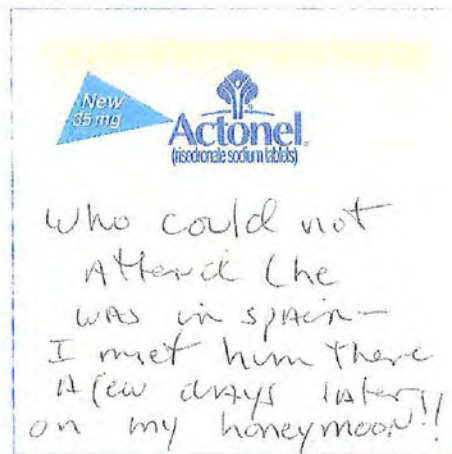 New
35 mg
Actonel®
(risedronate sodium tablets)
who could not
Attend (he
was in spain-
I met him there
A few days later,
on my honeymoon!!